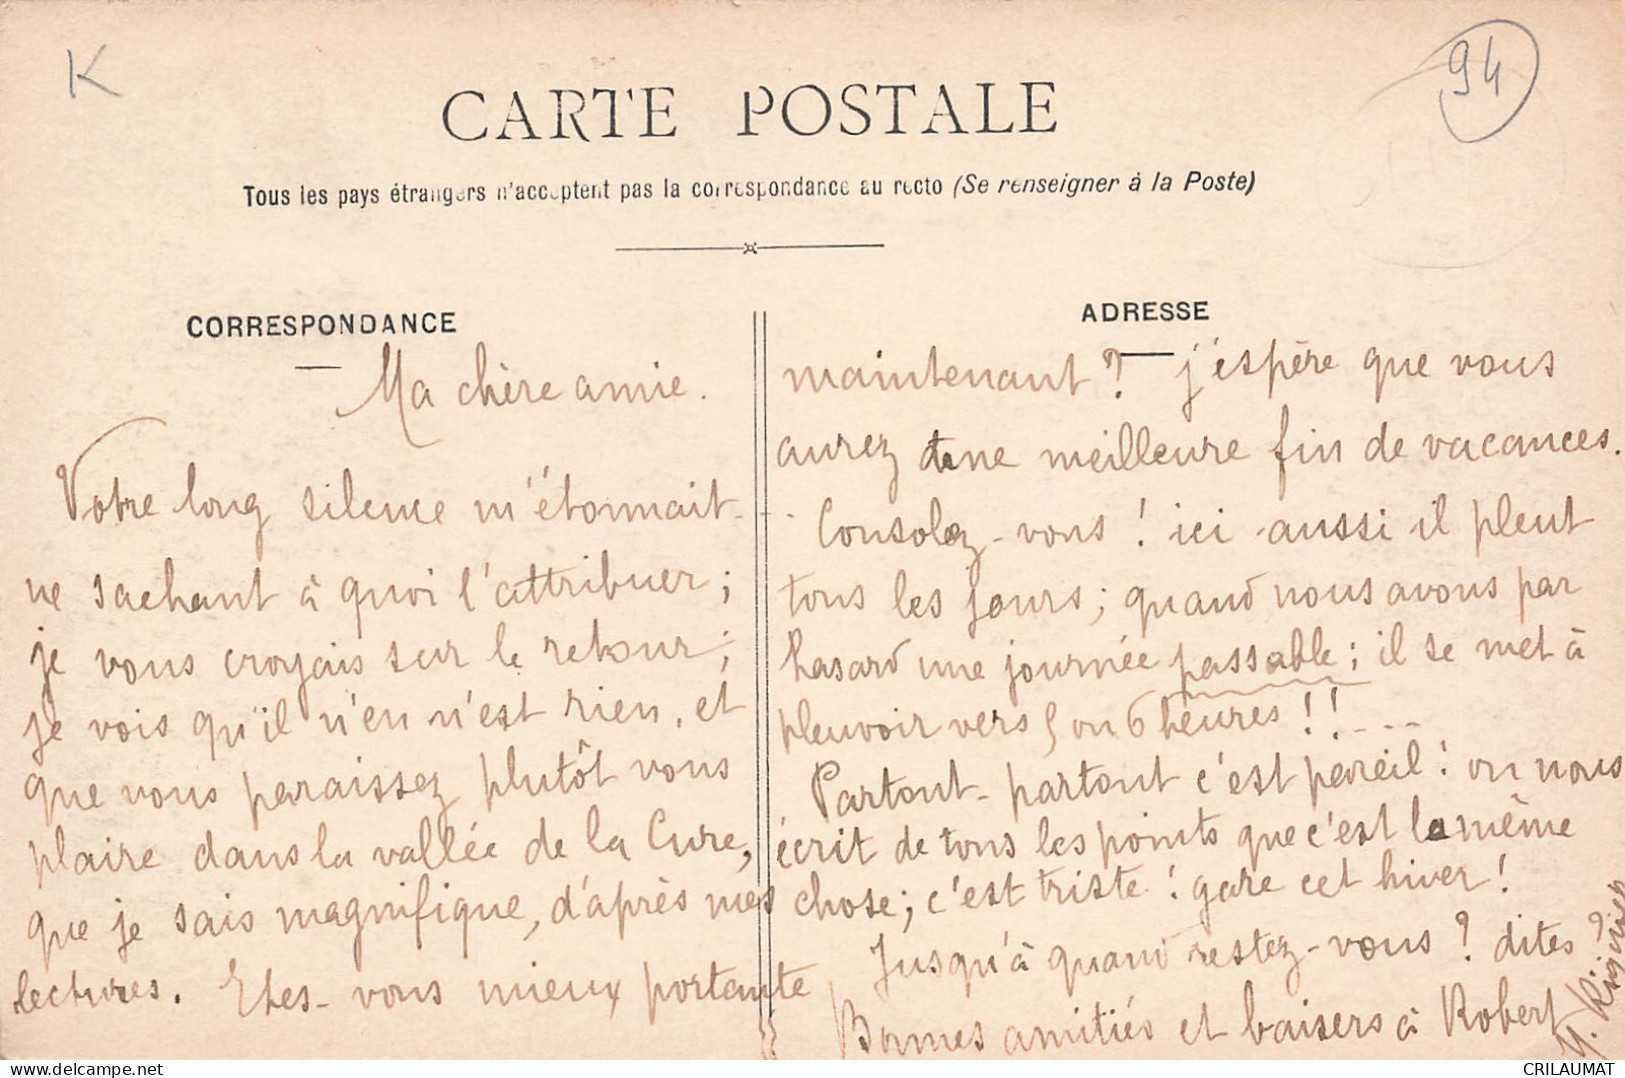 K
94
CARTE POSTALE
Tous les pays étrangers n'acceptent pas la correspondance au recto (Se renseigner à la Poste)
CORRESPONDANCE
Ma chère amie.
Votre long silence m'étonnait
ne sachant à quoi l'attribuer;
je vous croyais sur le retour;
je vois qu'il n'en n'est rien, et
que vous paraissez plutôt vous
plaire dans la vallée de la Cure,
que je sais magnifique, d'après mes
lectures. Etes-vous mieux portante
ADRESSE
maintenant? j'espère que vous
aurez une meilleure fin de vacances.
Consolez-vous! ici aussi il pleut
tous les jours; quand nous avons par
hasard une journée passable; il se met à
pleuvoir vers 5 ou 6 heures!!...
Partout-partout c'est pareil: on nous
écrit de tous les points que c'est la même
chose; c'est triste! gare cet hiver!
Jusqu'à quand restez-vous? dites?
Bonnes amitiés et baisers à Robert
Y.
delcampe.net
CRILAUMAT